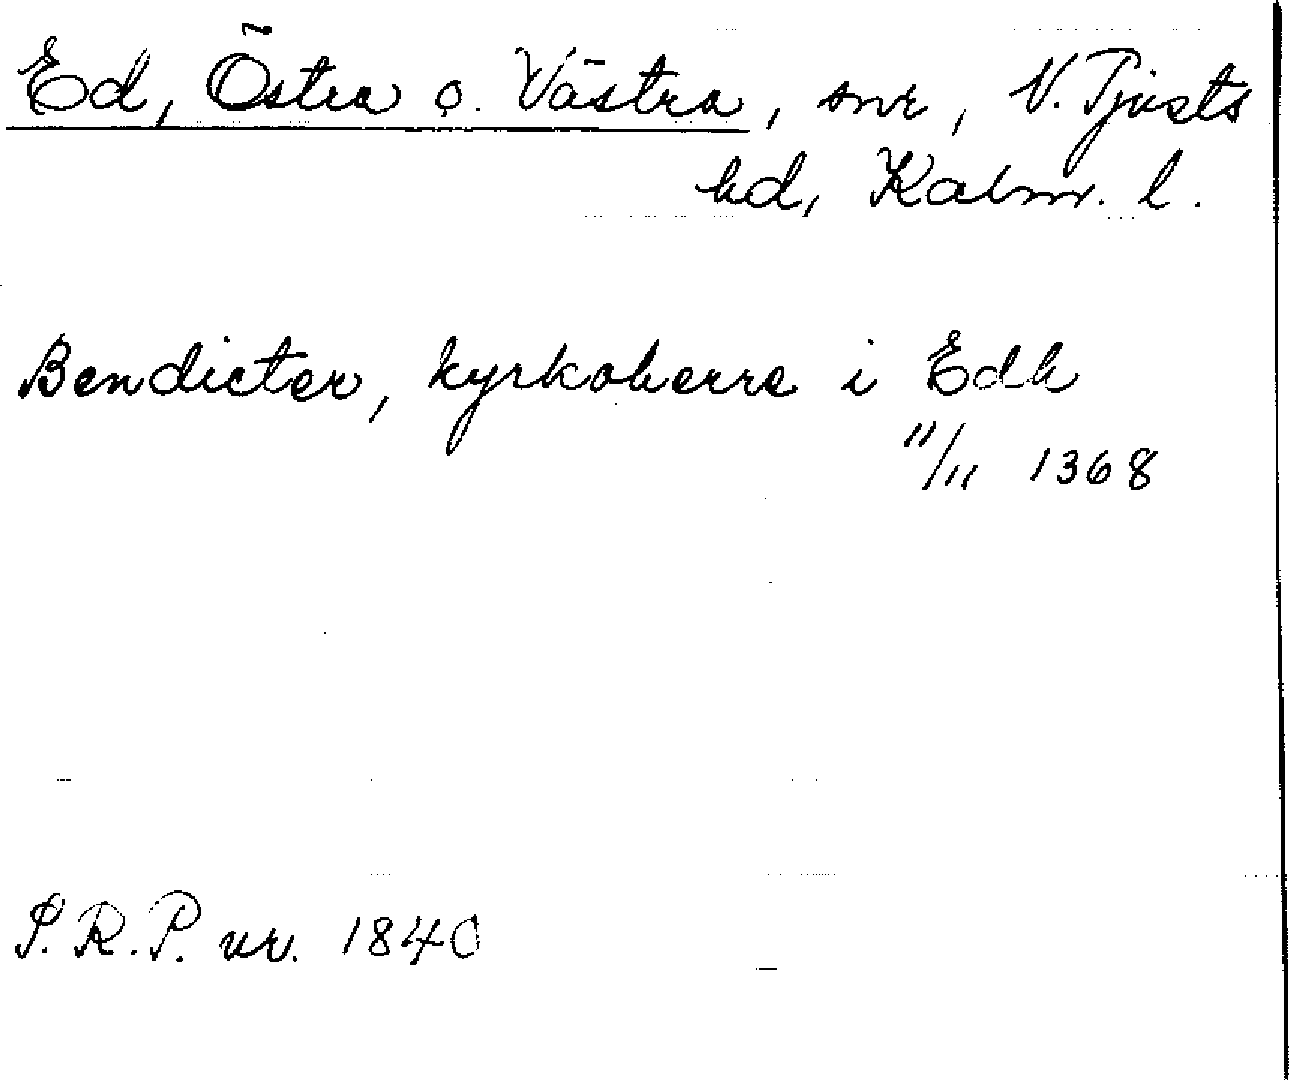 Ed, Östra o. Västra, snr, N. Tjusts
hd, Kalm. l.
Bendicter, kyrkoherre i Edh
11/11 1368
S. R. P. nr. 1840